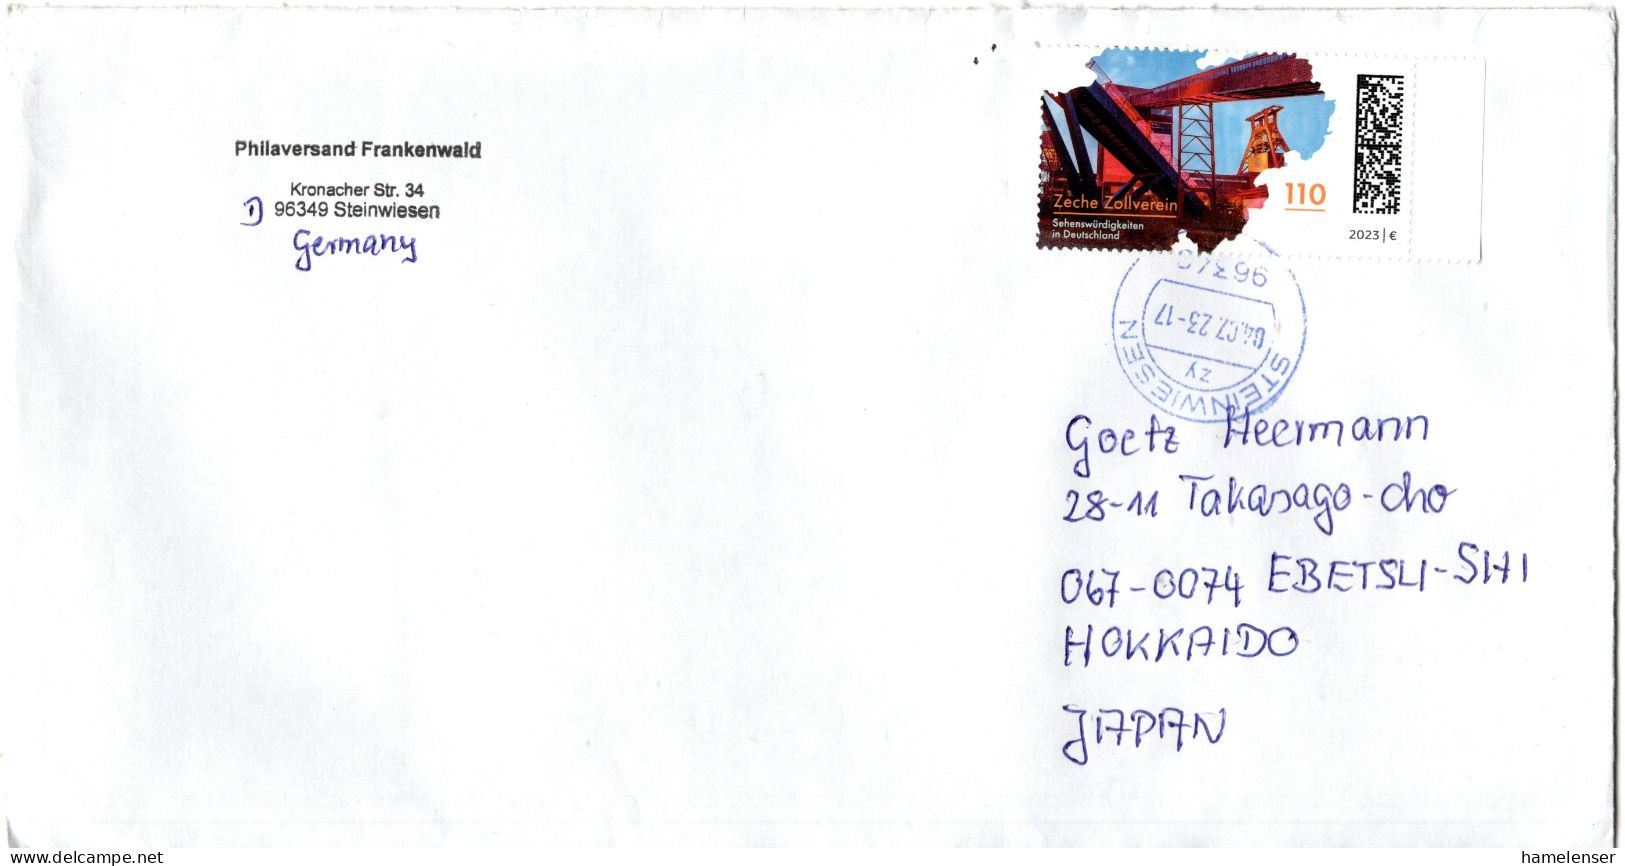 Philaversand Frankenwald
Kronacher Str. 34
D 96349 Steinwiesen
Germany
Zeche Zollverein
Sehenswürdigkeiten
in Deutschland
110
2023 | €
STEINWIESEN
04.07.23-17
zy
Goetz Heermann
28-11 Takasago-cho
067-0074 EBETSU-SHI
HOKKAIDO
JAPAN
www.delcampe.net
hamelenser